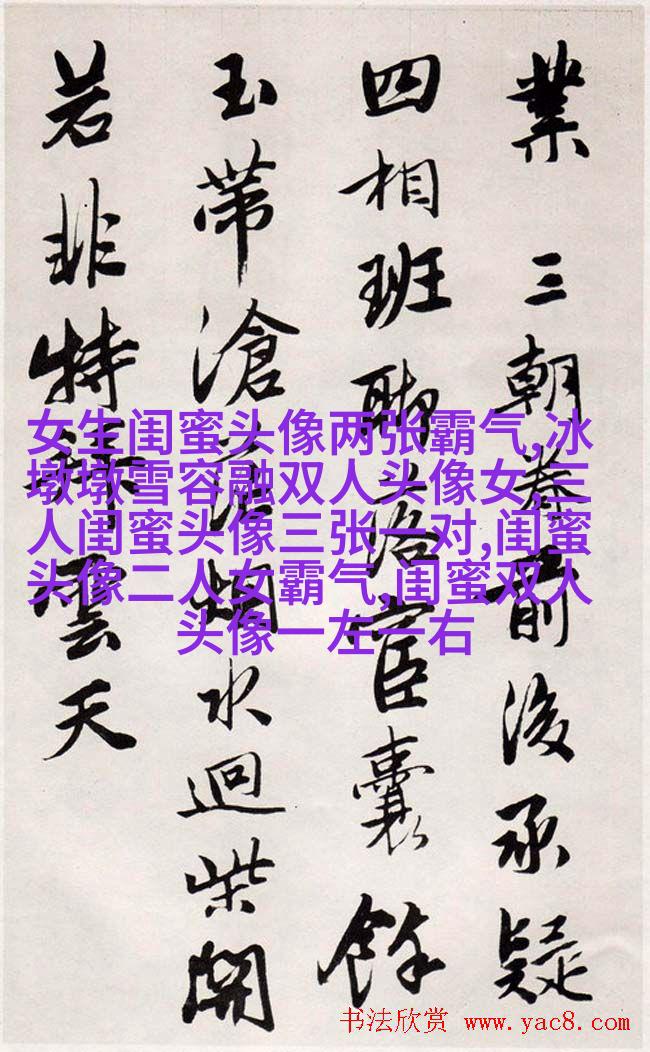 業三朝眷前後丞疑
四相班聯落宦囊餘
玉帶滄茫烟水迴柴関
若非特雲天
女生闺蜜头像两张霸气,冰
墩墩雪容融双人头像女,三
人闺蜜头像三张一对,闺蜜
头像二人女霸气,闺蜜双人
头像一左一右
书法欣赏 www.yac8.com